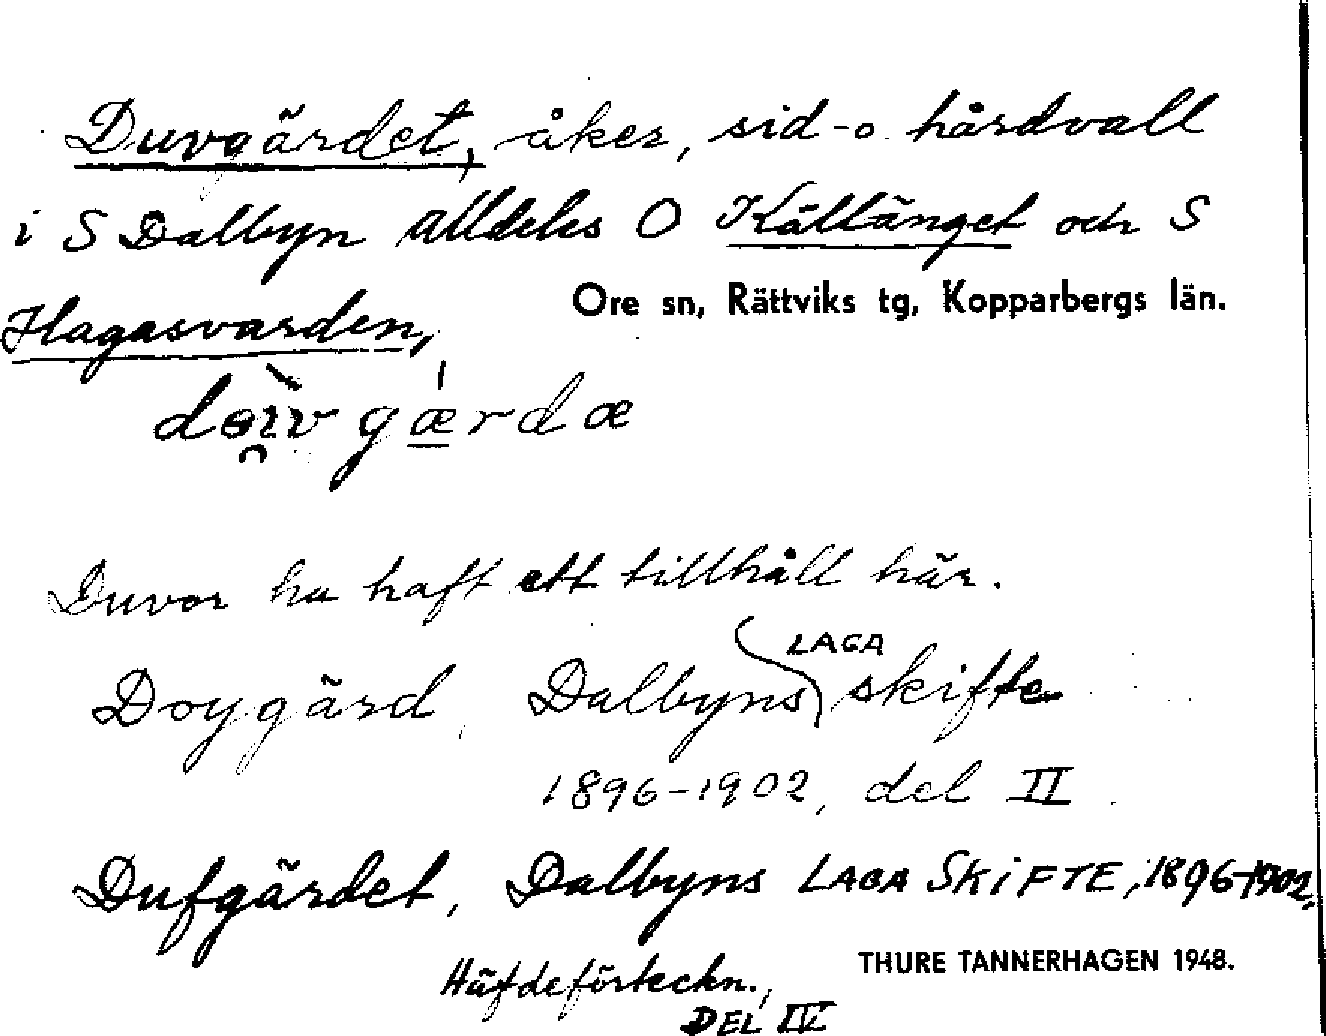 Duvgärdet, åker, sid- o. hårdvall
i S Dalbyn alldeles O Kåltänget och S
Hagasvarden,
Ore sn, Rättviks tg, Kopparbergs län.
Duvor ha haft ett tillhåll här.
Doygärd, Dalbyns LAGA skifte
1896-1902, del II.
Dufgärdet, Dalbyns LAGA SKIFTE, 1896-1902.
Häfdeförteckn.,
DEL IV
THURE TANNERHAGEN 1948.